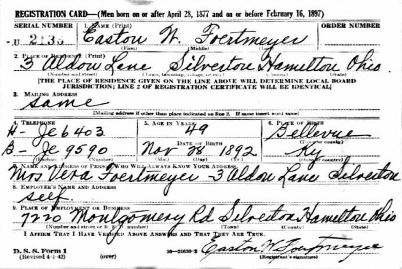 REGISTRATION CARD—(Men born on or after April 28, 1877 and on or before February 16, 1897)
SERIAL NUMBER 1. NAME (Print) ORDER NUMBER
U 2135 Easton W. Foertmeyer
(First) (Middle) (Last)
2. PLACE OF RESIDENCE (Print)
3 Aldon Lane Silverton Hamilton Ohio
(Number and street) (Town, township, village, or city) (County) (State)
[THE PLACE OF RESIDENCE GIVEN ON THE LINE ABOVE WILL DETERMINE LOCAL BOARD
JURISDICTION; LINE 2 OF REGISTRATION CERTIFICATE WILL BE IDENTICAL]
3. MAILING ADDRESS
Same
[Mailing address if other than place indicated on line 2. If same insert word same]
4. TELEPHONE 5. AGE IN YEARS 6. PLACE OF BIRTH
H- Je 6403 49 Bellevue
DATE OF BIRTH (Town or county)
B- Je 9590 Nov 28 1892 Ky
(Exchange) (Number) (Mo.) (Day) (Yr.) (State or country)
7. NAME AND ADDRESS OF PERSON WHO WILL ALWAYS KNOW YOUR ADDRESS
Mrs Vera Foertmeyer 3 Aldon Lane Silverton
8. EMPLOYER'S NAME AND ADDRESS
Self
9. PLACE OF EMPLOYMENT OR BUSINESS
7220 Montgomery Rd Silverton Hamilton Ohio
(Number and street or R. F. D. number) (Town) (County) (State)
I AFFIRM THAT I HAVE VERIFIED ABOVE ANSWERS AND THAT THEY ARE TRUE.
D. S. S. Form 1
(Revised 4-1-42) (over) Easton W Foertmeyer
(Registrant's signature)